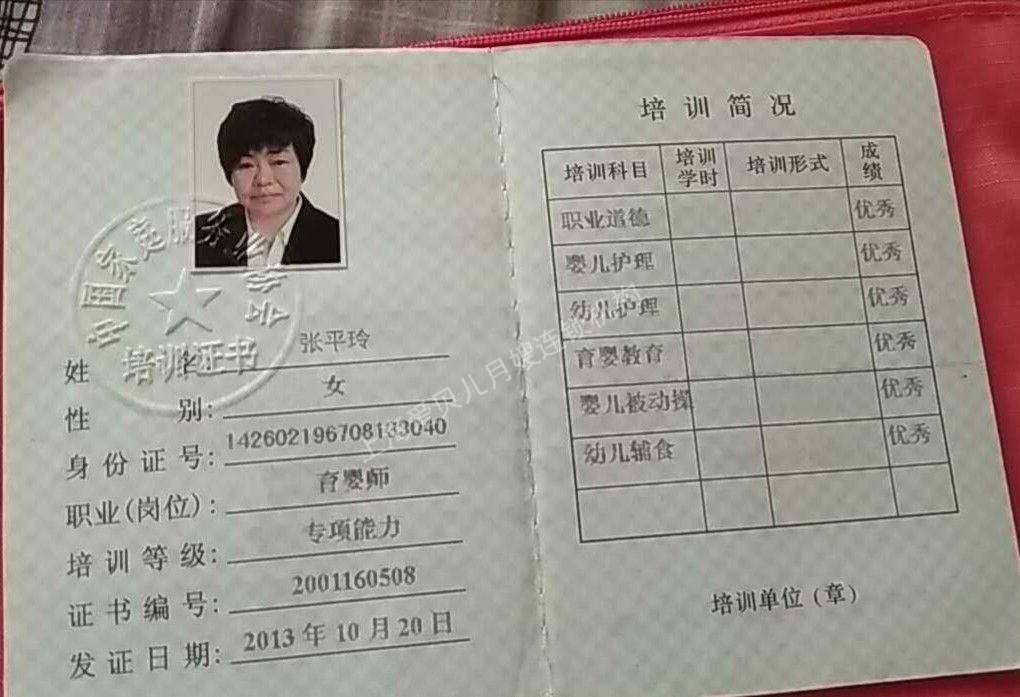 中国家庭服务
培训证书
姓 名: 张平玲
性 别: 女
身份证号: 142602196708133040
职业(岗位): 育婴师
培训等级: 专项能力
证书编号: 2001160508
发证日期: 2013 年 10 月 20 日
培训简况
培训科目 培训学时 培训形式 成绩
职业道德 优秀
婴儿护理 优秀
幼儿护理 优秀
育婴教育 优秀
婴儿被动操 优秀
幼儿辅食 优秀
培训单位(章)
贝儿月嫂连锁